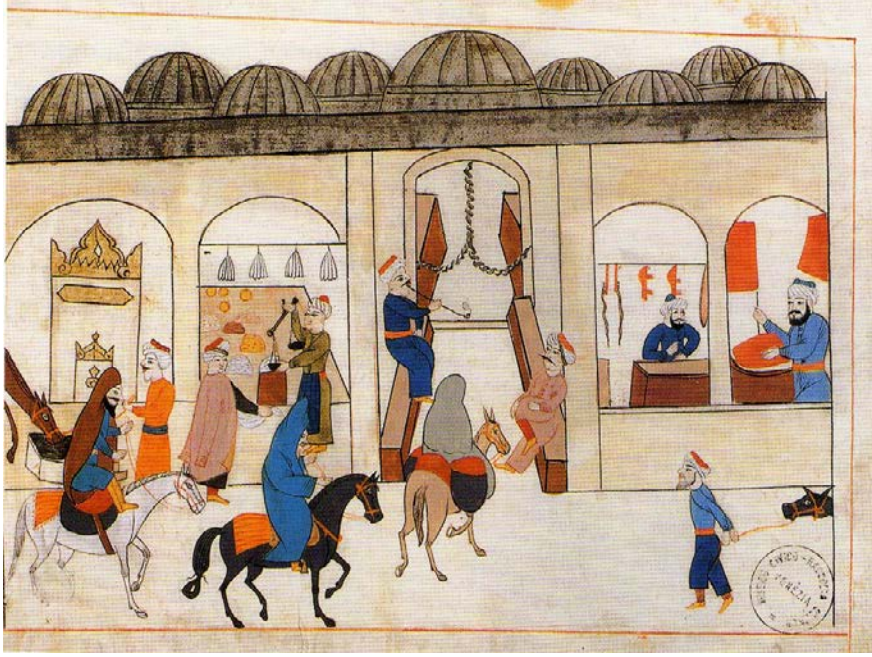 MUSEO CIVICO-RACCOLTA
VENEZIA